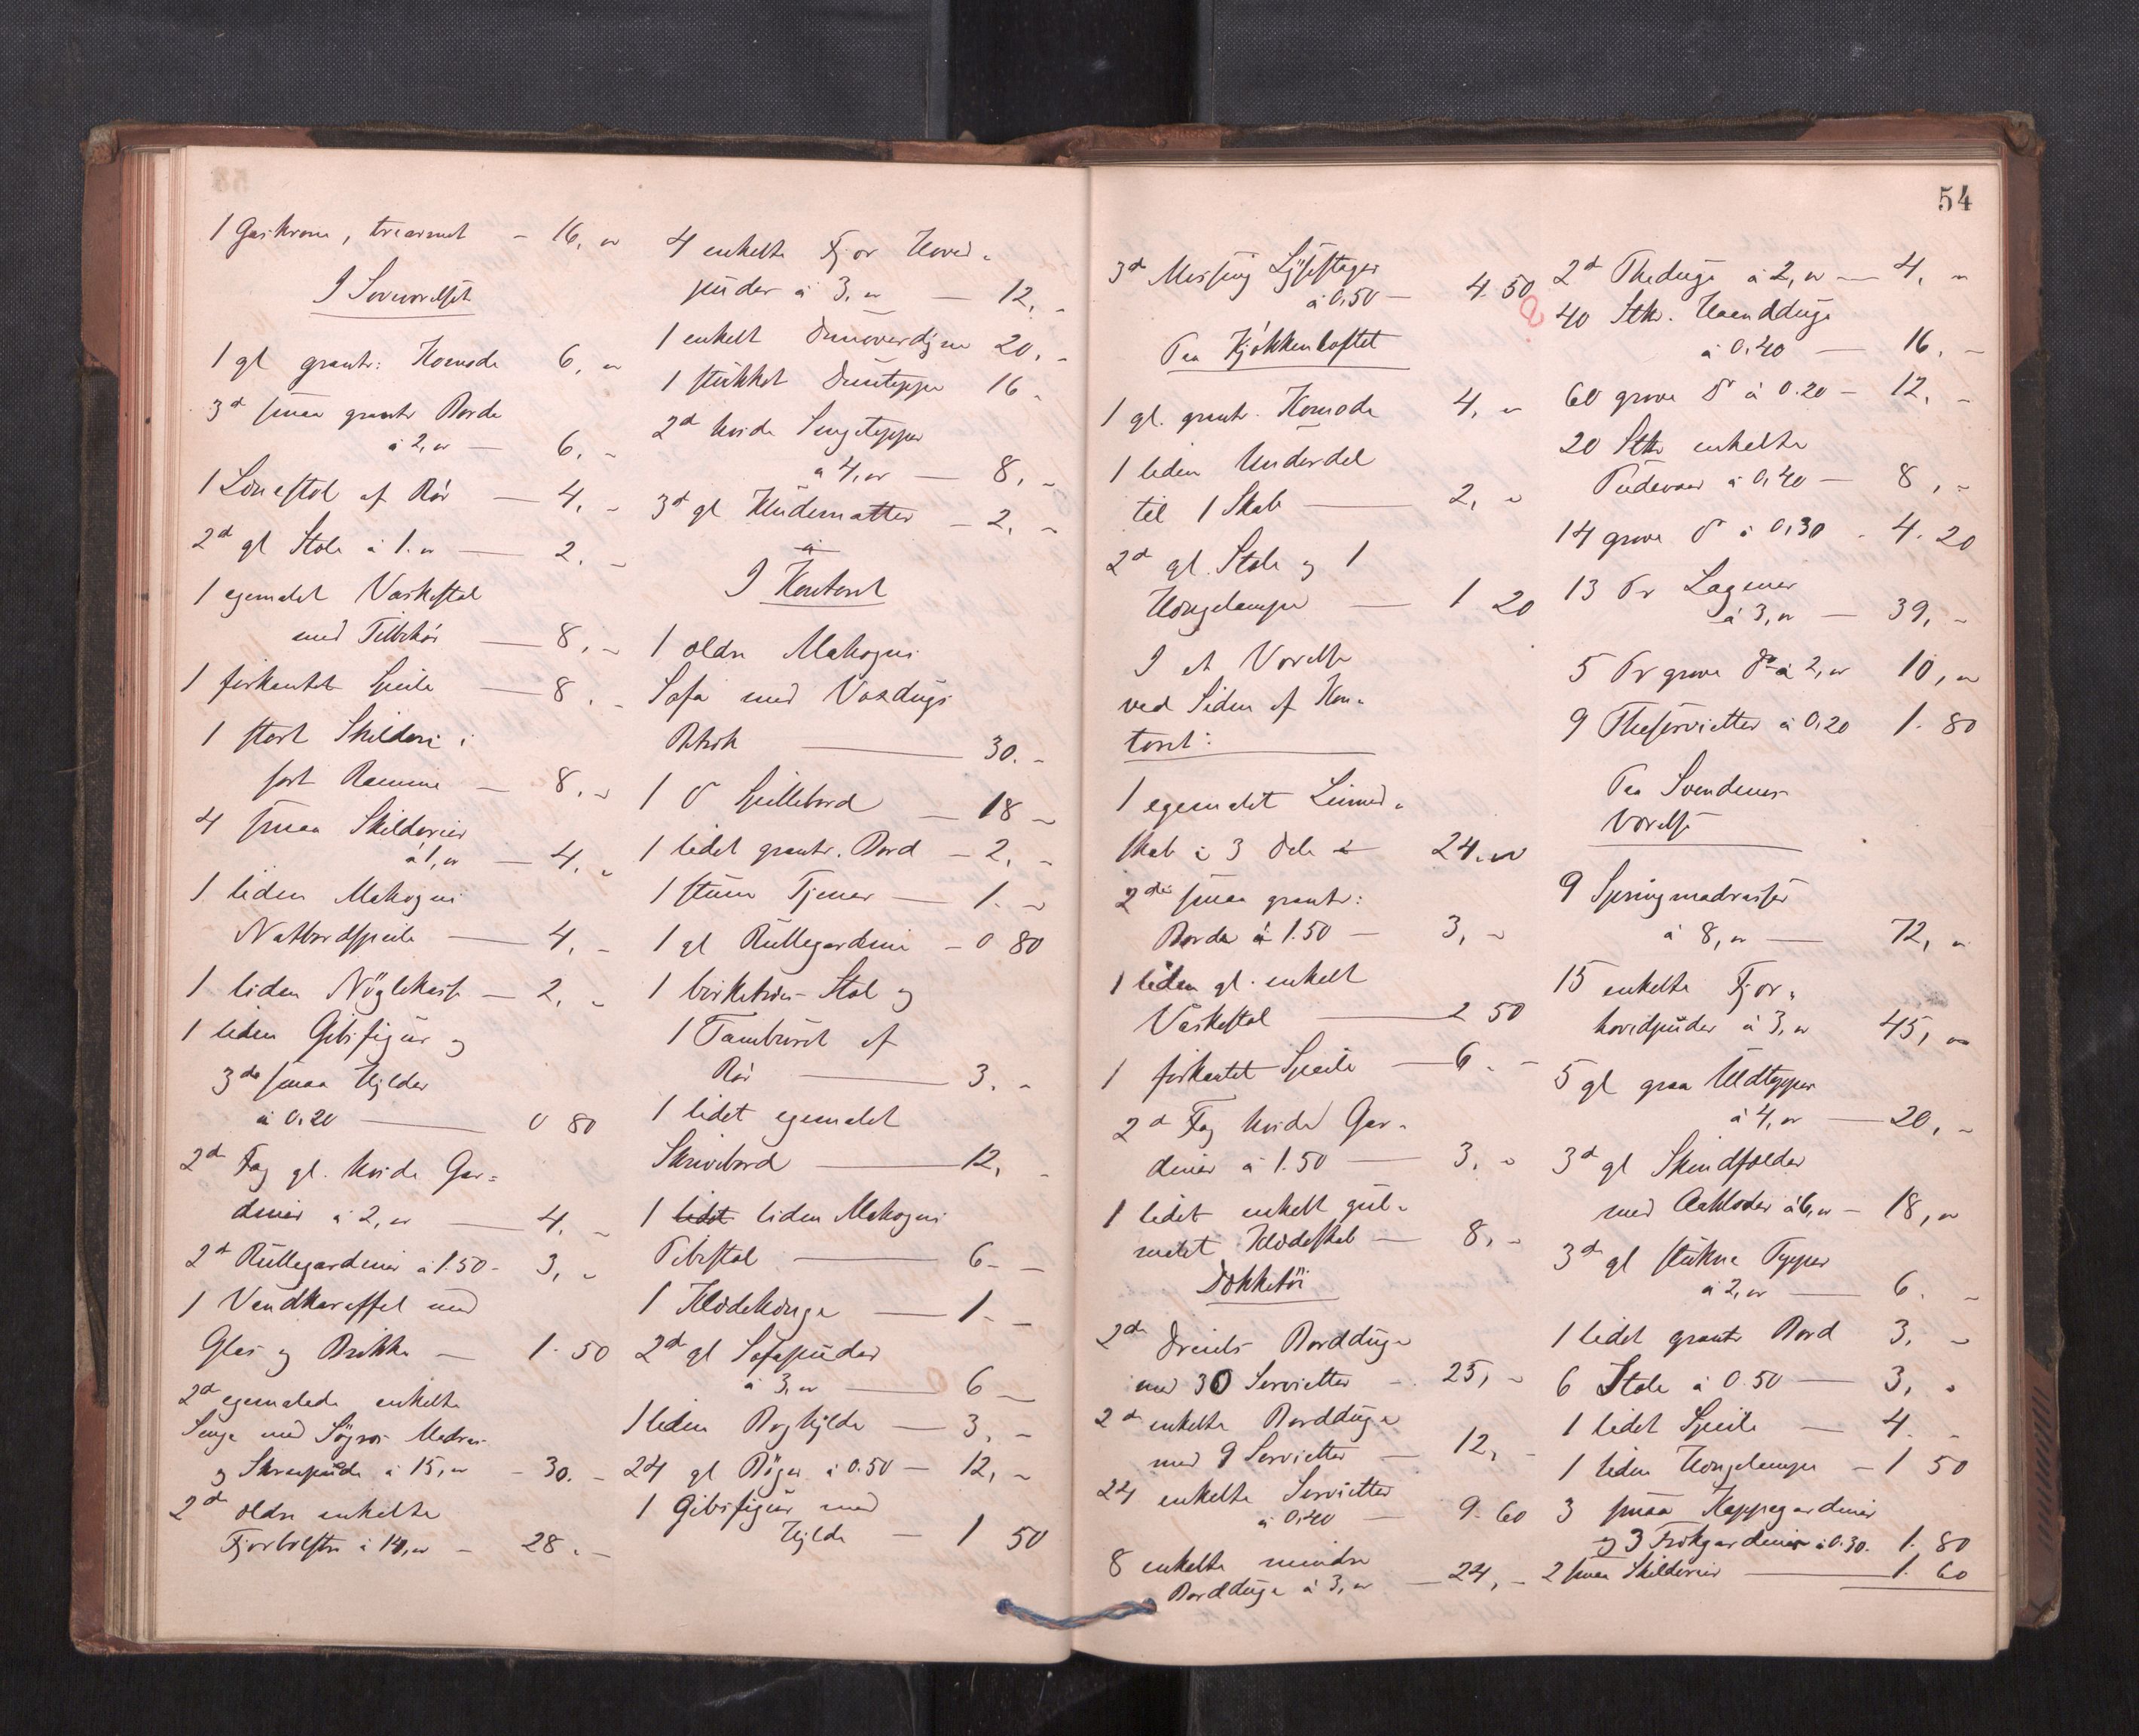 1 Gaskrone, trearmet – 16, "
I Soveværelset
1 gl grantr: Komode 6, "
3de smaa grantr Borde
à 2, " — 6, "
1 Lænestol af Rör — 4, "
2de gl Stole à 1. " — 2. "
1 egemalet Vaskestol
med Tilbehör — 8, "
1 firkantet Speile — 8, "
1 stort Skilderi i
sort Ramme — 8, "
4 smaa Skilderier
à 1, " — 4, "
1 liden Mahogni
Natbordspeile — 4, "
1 liden Nöglekasse — 2, "
1 liden Gibsfigur og
3de smaa Hylder
à 0.20 — 0 80
2de Fag gl. hvide Gar=
diner à 2, " — 4, "
2de Rullegardiner à 1.50 - 3, "
1 Vandkaraffel med
Glas og Brikke — 1. 50
2de egemalede enkelte
Senge med Sögræs Madras
og Skraapude à 15, " – 30. "
2de ældre enkelte
Fjærbolstre à 14, " – 28. "
4 enkelte Fjær Hoved=
puder à 3, " — 12, "
1 enkelt Dunoverdyne 20, "
1 stukket Dunteppe 16 "
2de hvide Sengetepper
à 4, " — 8, "
3de gl Kludematter – 2, "
I Kontoret
1 ældre Mahogni
Sofa med Voxdugs
Betræk — 30. "
1 do Spillebord — 18 "
1 lidet grantr. Bord – 2, "
1 stum Tjener — 1. "
1 gl Rullegardin – 0 80
1 birketræs Stol og
1 Tamburet af
Rör — 3. "
1 lidet egemalet
Skrivebord — 12, "
1 lidet liden Mahogni
Pibestol — 6 "
1 Klædehænge — 1 "
2de gl Sofapuder
à 3, " — 6 "
1 liden Boghylde — 3, "
24 gl Böger à 0.50 — 12, "
1 Gibsfigur med
Hylde — 1 50
54
3de Messing Lysestager
à 0,50 — 4.50
Paa Kjökkenloftet
1 gl. grantr. Komode 4, "
1 liden Underdel
til 1 Skab — 2, "
2de gl. Stole og 1
Hængelampe — 1 20
I et Værelse
ved Siden af Kon=
toret:
1 egemalet Linned=
skab i 3 Dele 24. "
2de smaa grantr:
Borde à 1.50 — 3, "
1 liden gl. enkelt
Vaskestol — 2 50
1 firkantet Speile — 6. "
2de Fag hvide Gar=
diner à 1.50 — 3. "
1 lidet enkelt gul=
malet Klædeskab — 8, "
Dækketöi
2de Dreiels Bordduge
med 30 Servietter – 25, "
2de enkelte Bordduge
med 9 Servietter — 12, "
24 enkelte Servietter
à 0,40 — 9.60
8 enkelte mindre
Bordduge à 3, " — 24, "
2de Theduge à 2, " — 4, "
40 Stk. Haandduge
à 0.40 — 16. "
60 grove do à 0.20 – 12, "
20 Stk enkelte
Pudevaar à 0,40 — 8, "
14 grove do à 0,30 . 4. 20
13 Pr Lagener
à 3, " — 39, "
5 Pr grove do à 2, " 10, "
9 Theservietter à 0,20 1. 80
Paa Svendenes
Værelse
9 Springmadrasser
à 8, " — 72, "
15 enkelte Fjær=
hovedpuder à 3, " 45, "
5 gl graa Uldtepper
à 4, " — 20, "
3de gl Skindfælder
med Aaklæder à 6, " – 18, "
3de gl stukne Tepper
à 2, " — 6. "
1 lidet grantr Bord 3, "
6 Stole à 0.50 — 3, "
1 lidet Speile — 4. "
1 liden Hængelampe – 1 50
3 smaa Kappegardiner
og 3 Trækgardiner à 0.30. 1. 80
2 smaa Skilderier — 1. 60